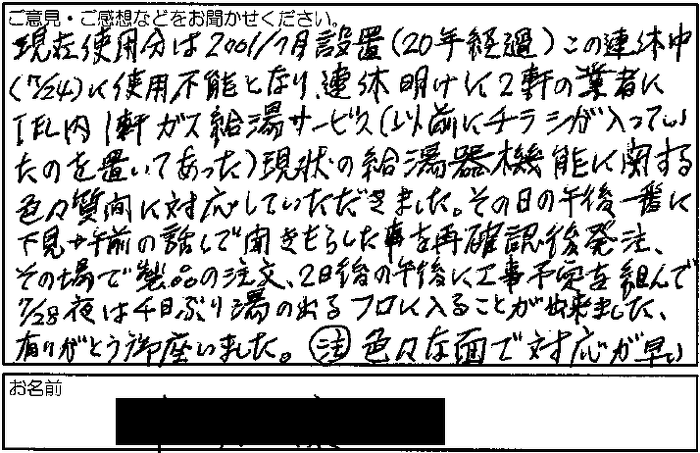 ご意見・ご感想などをお聞かせください。
現在使用分は2001/7月設置(20年経過)この連休中
(7/24)に使用不能となり、連休明けに2軒の業者に
TEL内1軒ガス給湯サービス(以前にチラシが入ってい
たのを置いてあった)現状の給湯器機能に関する
色々質問に対応していただきました。その日の午後一番に
下見 午前の話しで聞きもらした事を再確認後発注、
その場で製品の注文、2日後の午後に工事予定を組んで
7/28夜は4日ぶり湯の出るフロに入ることが出来ました、
有りがとう御座いました。 注 色々な面で対応が早い
お名前